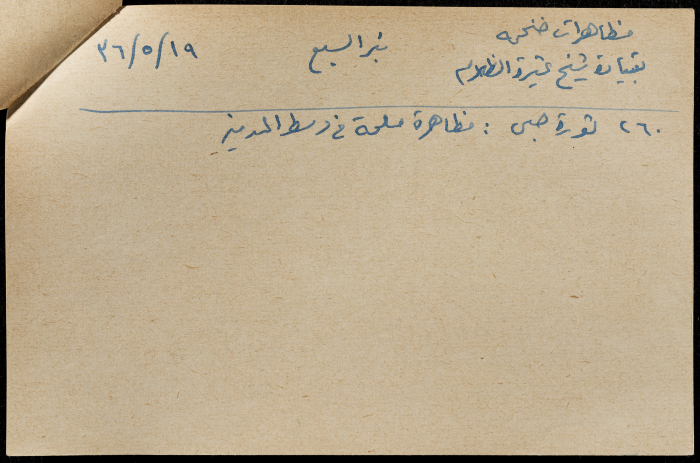 مظاهرات ضخمه بئر السبع ٣٦/٥/١٩
بقيادة شيخ عشيرة الظلام
٢٦٠ ثورة صبي : مظاهرة مسلحة في وسط المدينة